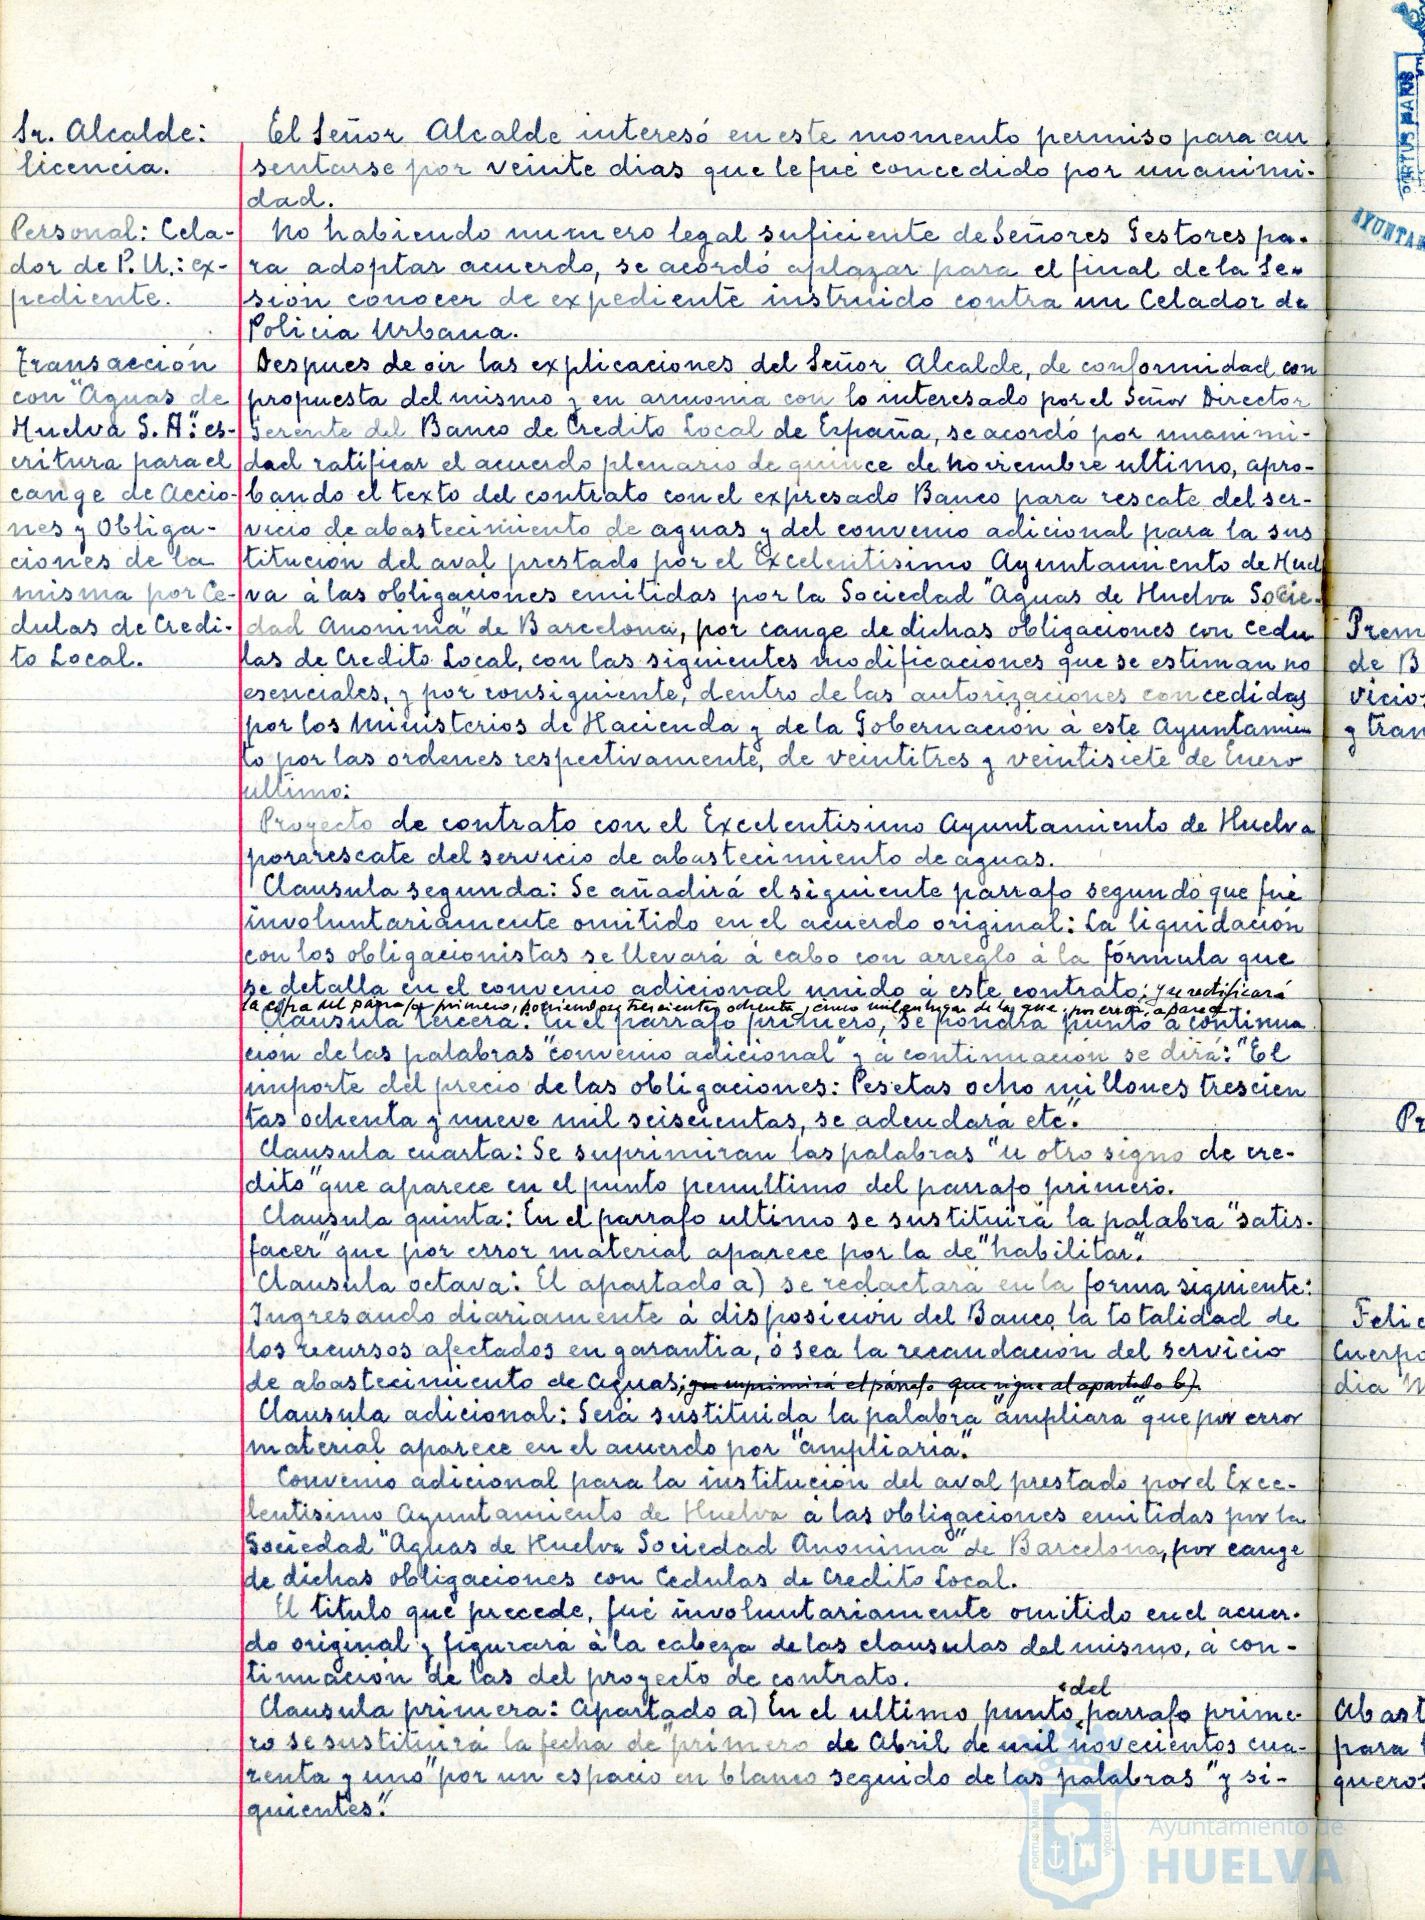 Sr. Alcalde:
licencia.
El Señor Alcalde interesó en este momento permiso para au
sentarse por veinte dias que le fué concedido por unanimi-
dad.
Personal: Cela-
dor de P. U.: ex-
pediente.
No habiendo numero legal suficiente de Señores Gestores pa-
ra adoptar acuerdo, se acordó aplazar para el final de la Se-
sión conocer de expediente instruido contra un Celador de
Policia Urbana.
Transacción
con "Aguas de
Huelva S. A": es-
critura para el
cange de Accio-
nes y Obliga-
ciones de la
misma por Ce-
dulas de Credi-
to Local.
Despues de oir las explicaciones del Señor Alcalde, de conformidad con
propuesta del mismo y en armonia con lo interesado por el Señor Director
Gerente del Banco de Credito Local de España, se acordó por unanimi-
dad ratificar el acuerdo plenario de quince de noviembre ultimo, apro-
bando el texto del contrato con el expresado Banco para rescate del ser-
vicio de abastecimiento de aguas y del convenio adicional para la sus
titución del aval prestado por el Excelentisimo Ayuntamiento de Huel
va á las obligaciones emitidas por la Sociedad "Aguas de Huelva Socie-
dad Anonima" de Barcelona, por cange de dichas obligaciones con cedu
las de Credito Local, con las siguientes modificaciones que se estiman no
esenciales, y por consiguiente, dentro de las autorizaciones concedidas
por los Ministerios de Hacienda y de la Gobernación á este Ayuntamien
to por las ordenes respectivamente, de veintitres y veintisiete de Enero
ultimo:
Proyecto de contrato con el Excelentisimo Ayuntamiento de Huelva
pora rescate del servicio de abastecimiento de aguas.
Clausula segunda: Se añadirá el siguiente parrafo segundo que fué
involuntariamente omitido en el acuerdo original: La liquidación
con los obligacionistas se llevará á cabo con arreglo á la fórmula que
se detalla en el convenio adicional unido á este contrato; y se rectificará
la cifra del párrafo primero, poniendose trescientas ochenta y cinco mil en lugar de la que, por error, aparece
Clausula tercera: En el parrafo primero, se pondrá punto á continua
ción de las palabras "convenio adicional" y á continuación se dirá: "El
importe del precio de las obligaciones: Pesetas ocho millones trescien
tas ochenta y nueve mil seiscientas, se adeudará etc".
Clausula cuarta: Se suprimiran las palabras "u otro signo de cre-
dito" que aparece en el punto penultimo del parrafo primero.
Clausula quinta: En el parrafo ultimo se sustituirá la palabra "satis-
facer" que por error material aparece por la de "habilitar".
Clausula octava: El apartado a) se redactará en la forma siguiente:
Ingresando diariamente á disposición del Banco la totalidad de
los recursos afectados en garantia, ó sea la recaudación del servicio
de abastecimiento de Aguas; que suprimirá el párrafo que sigue al apartado b).
Clausula adicional: Será sustituida la palabra "ampliara" que por error
material aparece en el acuerdo por "ampliaria".
Convenio adicional para la institución del aval prestado por el Exce-
lentisimo Ayuntamiento de Huelva á las obligaciones emitidas por la
Sociedad "Aguas de Huelva Sociedad Anonima" de Barcelona, por cange
de dichas obligaciones con Cedulas de Credito Local.
El titulo que precede, fué involuntariamente omitido en el acuer-
do original y figurará á la cabeza de las clausulas del mismo, á con-
tinuación de las del proyecto de contrato.
del
Clausula primera: Apartado a) En el ultimo punto parrafo prime-
ro se sustituirá la fecha de "primero de Abril de mil novecientos cua-
renta y uno" por un espacio en blanco seguido de las palabras "y si-
guientes".
PORTUS MARIS
AYUNTAM
Prem
de B
vicio
y tran
Pr
Felic
Cuerpo
dia
Abast
para
queros
Ayuntamiento de
HUELVA